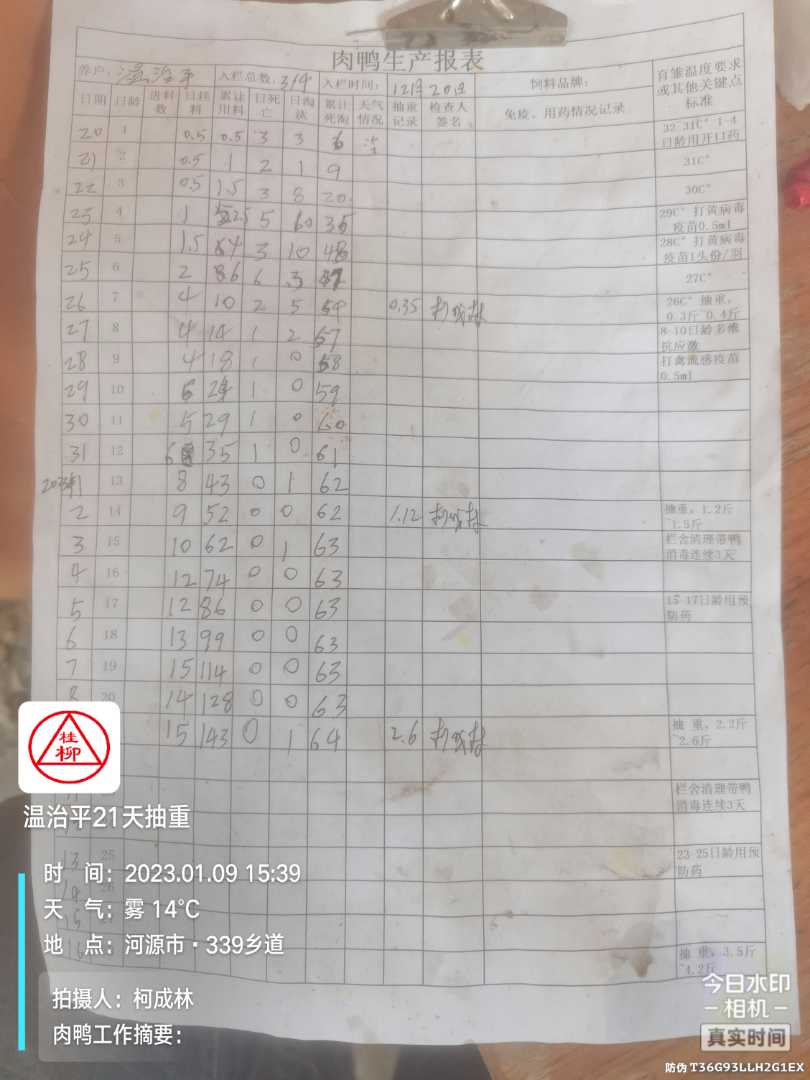 肉鸭生产报表
养户: 温治平 入栏总数: 319 入栏时间: 12月20日 饲料品牌: 育雏温度要求或其他关键点标准
日期 日龄 进料数 日耗料 累计用料 日死亡 日淘汰 累计死淘 天气情况 抽重记录 检查人签名 免疫、用药情况记录
20 1 0.5 0.5 3 3 6 32-31C° 1-4日龄用开口药
21 2 0.5 1 2 1 9 31C°
22 3 0.5 1.5 3 8 20 30C°
23 4 1 5 35 29C° 打黄病毒疫苗0.5ml
24 5 1.5 3 10 48 28C° 打黄病毒疫苗1头份/羽
25 6 2 6 3 27C°
26 7 4 10 2 5 0.35 26C° 抽重, 0.3斤~0.4斤
27 8 4 14 1 2 57 8-10日龄多维抗应激
28 9 4 18 1 0 58 打禽流感疫苗0.5ml
29 10 6 24 1 0 59
30 11 5 29 1 0 60
31 12 6 35 1 0 61
1 13 8 43 0 1 62
2 14 9 52 0 0 62 1.12 抽重, 1.2斤~1.5斤
3 15 10 62 0 1 63 栏舍清理带鸭消毒连续3天
4 16 12 74 0 0 63
5 17 12 86 0 0 63 15-17日龄用预防药
6 18 13 99 0 0 63
7 19 15 114 0 0 63
8 20 14 128 0 0 63
15 143 0 1 64 2.6 抽重, 2.2斤~2.6斤
栏舍清理带鸭消毒连续3天
13 25 23-25日龄用预防药
14 26
15
16 抽重, 3.5斤~4.2斤
桂柳
温治平21天抽重
时 间: 2023.01.09 15:39
天 气: 雾 14℃
地 点: 河源市·339乡道
拍摄人: 柯成林
肉鸭工作摘要:
今日水印
-相机-
真实时间
防伪 T36G93LLH2G1EX